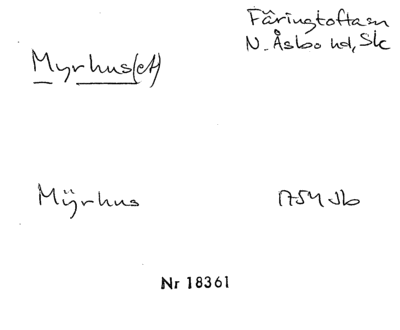 Färingtofta sn
N. Åsbo hd, Sk
Myrhus(et)
Mÿrhus 1754 Jb
Nr 18361